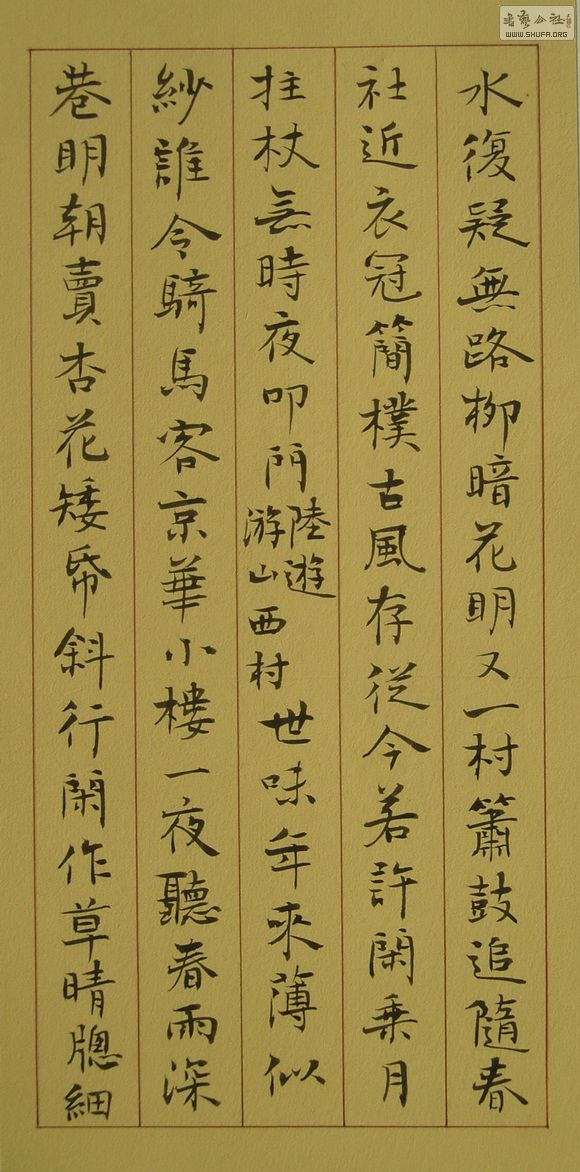 水復疑無路柳暗花明又一村簫鼓追隨春
社近衣冠簡樸古風存從今若許閑乗月
拄杖無時夜叩門
陸遊
游山西村
世味年來薄似
紗誰令騎馬客京華小樓一夜聽春雨深
巷明朝賣杏花矮帋斜行閑作草晴牕細
WWW.SHUFA.ORG